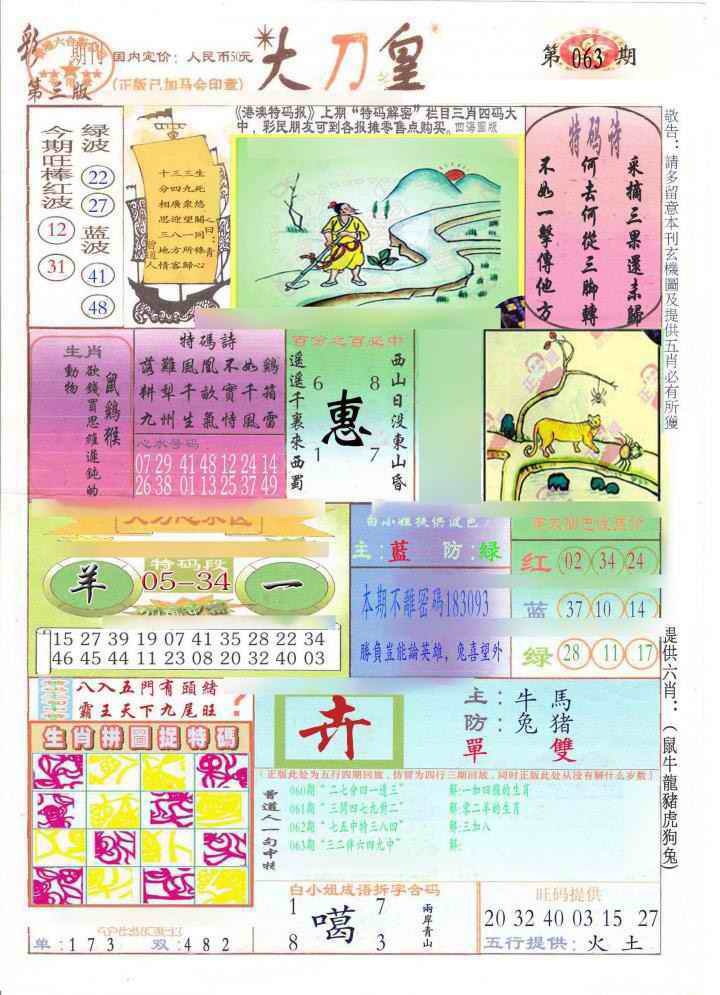 彩
期刊
第三版
国内定价：人民币50元
(正版已加马会印章)
大刀皇
第063期
《港澳特码报》上期“特码解密”栏目三肖四码大
中，彩民朋友可到各报摊零售点购买。四海圖版
今期旺棒红波
12
31
绿波
22
27
蓝波
41
48
十三三生
分四九死
相廣衆悠
思迎望關
三八一同
地方所緣
情客歸心
曾道人
特码诗
采摘三果還未歸
何去何從三脚轉
不如一擊傳他方
敬告：請多留意本刊玄機圖及提供五肖必有所獲
生肖
鼠鷄猴
欲錢買思維遲鈍的
動物
特碼詩
落難鳳凰不如鷄
耕犁千畝實千箱
九州生氣恃風雷
心水号码
07 29 41 48 12 24 14
26 38 01 13 25 37 49
百分之百必中
西山日没東山昏
遥遥千裏來西蜀
6 8
惠
1 7
特码段
羊
05-34
一
15 27 39 19 07 41 35 28 22 34
46 45 44 11 23 08 20 32 40 03
白小姐提供波色
主:蓝 防:绿
本期不離密碼183093
勝負豈能論英雄，兔喜望外
红 02 34 24
蓝 37 10 14
绿 28 11 17
八入五門有頭緒
霸王天下九尾旺
?
生肖拼圖捉特碼
卉
主：牛 馬
防：兔 猪
單 雙
提供六肖：(鼠牛龍豬虎狗兔)
(正版此处为五行四期回放，仿冒为四行三期回放，同时正版此处从没有解什么岁数)
曾道人一句中特
060期“二七分四一邊三” 解:一如四搬的生肖
061期“三開四七九對二” 解:零二羊的生肖
062期“七五中特三八四” 解:三加八
063期“三二伴六四九中” 解:
白小姐成语拆字合码
1 7
噶
8 3
兩岸青山
旺码提供
20 32 40 03 15 27
五行提供：火 土
单:173 双:482